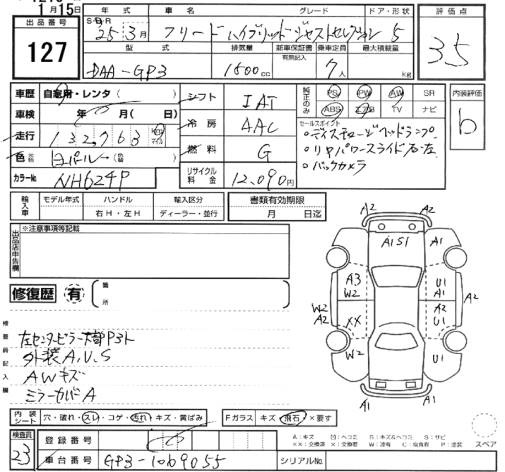 1月15日
出品番号 127
年式 車名 グレード ドア・形状 評価点
25年3月 フリードハイブリッドジャストセレクション 5
3.5
型式 排気量 新車保証書 有無記入 乗車定員 最大積載量
DAA-GP3 1500cc 7人 kg
車歴 自家用・レンタ シフト IAT
純正のみ PS PW AW SR
ABS エアB TV ナビ
内装評価 b
車検 年 月(日) 冷房 AAC
セールスポイト
走行 132,763 km マイル
。ディスチャージヘッドランプ
。リヤパワースライド右・左
。バックカメラ
燃料 G
色 白パール
カラーNo NH624P
リサイクル料金 12,090円
輸入車 モデル年式 ハンドル 輸入区分 書類有効期限
右H・左H ディーラー・並行 月 日迄
出品店申告欄 ※注意事項等記載
修復歴 有 箇所
検査員記入欄
左センターピラー大部P3ト
外装A.U.S
AWキズ
ミラーカバーA
A2 A2
A1S1 A1
A3 W2 U1 A1 A2
W2 A2 XX A2 U1
W2 U1
A1 A1
内装シート 穴・破れ・スレ・コゲ・汚れ・キズ・黄ばみ Fガラス キズ・飛石・×要す
スペア
検査員 23
登録番号
車台番号 GP3-1069055 シリアルNo
A:キズ U:ヘコミ S:サビ
XX:交換済 X:交換要 W:波有 C:腐食有 P:塗装